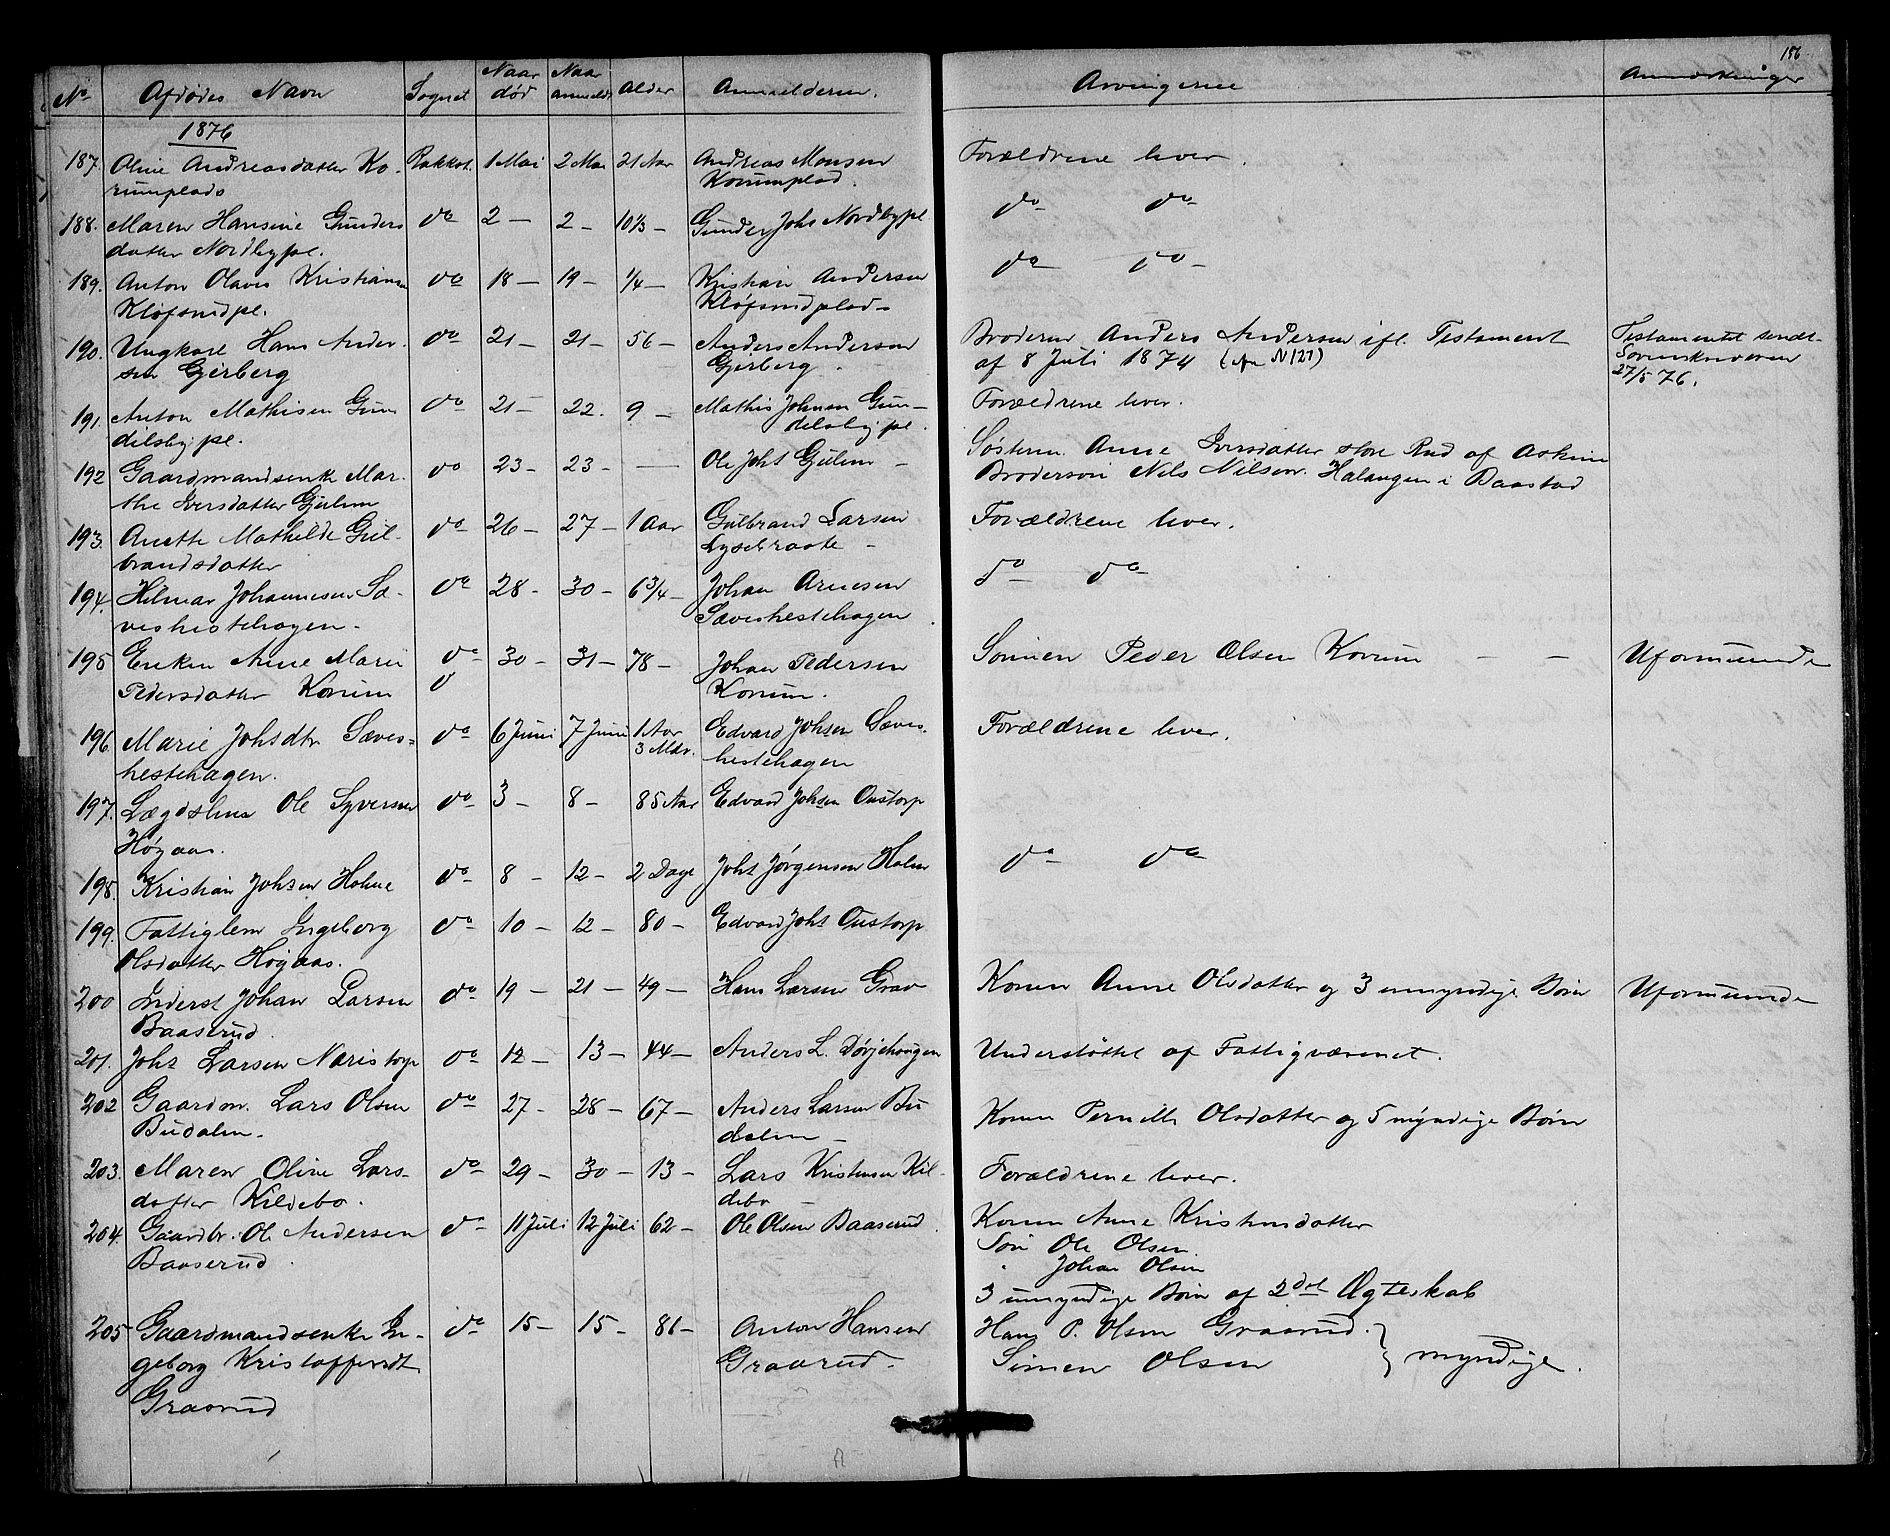 156
No Afdødes Navn Sognet Naar død Naar anmeldt Alder Anmelderen. Arvingerne Anmærkninger
1876
187. Oline Andreasdatter Ko- Rakkest. 1 Mai 2 Mai 21 Aar Andreas Monsen Forældrene lever.
rumplads Korumplad.
188. Maren Hansine Gunders do 2 — 2 — 10⅓ — Gunder Johs Nordbypl do do
datter Nordbypl.
189. Anton Olaves Kristiansen do 18 — 19 — ¼ — Kristian Andersen do do
Kløfsrudpl. Kløfsrudplads
190. Ungkarl Hans Ander- do 21 — 21 — 56 — Anders Andersen Broderen Anders Andersen ifl. Testament Testamentet sendt
sen Gjerberg Gjerberg. af 8 Juli 1874 (No 127) Sorenskriveren
27/5 76.
191. Anton Mathisen Gun do 21 — 22. 9 — Mathis Johnsen Gun- Forældrene lever.
dilsbypl. dilsbypl.
192 Gaardmandsenke Mar- do 23 — 23 — — Ole Johs Gjulem — Søsteren Anne Iversdatter store Rud af Askim
the Iversdatter Gjulem Brodersøn Nils Nilsen Halangen i Baastad
193. Anette Mathilde Gul- do 26 — 27 — 1 Aar Gulbrand Larsen Forældrene lever.
brandsdatter Lysebraate —
194. Hilmar Johannesen Sæ- do 28 — 30 — 6¾ — Johan Arnesen do do
veshestehagen — Sæveshestehagen.
195 Enken Anne Marie do 30 — 31 — 78 — Johan Pedersen Sønnen Peder Olsen Korum — — Uformuende
Pedersdatter Korum Korum.
196. Marie Johsdtr Sæves- do 6 Juni 7 Juni 1 Aar Edvard Johsen Sæves- Forældrene lever.
3 Mdr.
hestehagen. hestehagen
197. Lægdslem Ole Syversen do 3 — 8 — 85 Aar Edvard Johsen Oustorp
Høgaas.
198. Kristian Johsen Holme do 8 — 12 — 2 Dage Johs Jørgensen Holm do do
199. Fattiglem Ingeborg do 10 — 12 — 80 — Edvard Johs Oustorp
Olsdatter Høgaas.
200 Inderst Johan Larsen do 19 — 21 — 49 — Hans Larsen Grav Konen Anne Olsdatter og 3 umyndige Børn Uformuende
Baaserud
201. Johs Larsen Næristorp do 12 — 13 — 44 — Anders L. Dørjehougen Understøttet af Fattigvæsenet.
202 Gaardm. Lars Olsen do 27 — 28 — 67 — Anders Larsen Bu Konen Pernille Olsdatter og 5 myndige Børn
Budalen. dalen —
203. Maren Oline Lars- do 29 — 30 — 13 — Lars Kristensen Kil- Forældrene lever.
datter Kildebo. debo —
204. Gaardbr. Ole Andersen do 11 Juli 12 Juli 62 — Ole Olsen Baaserud Konen Anne Kristensdatter
Baaserud. Søn Ole Olsen.
" Johan Olsen
3 umyndige Børn af 2det Ægteskab
205 Gaardmandsenke In- do 15 — 15 — 81 — Anton Hansen Hans P. Olsen Graarud. } myndige.
geborg Kristoffersdt Graarud. Simen Olsen
Graarud